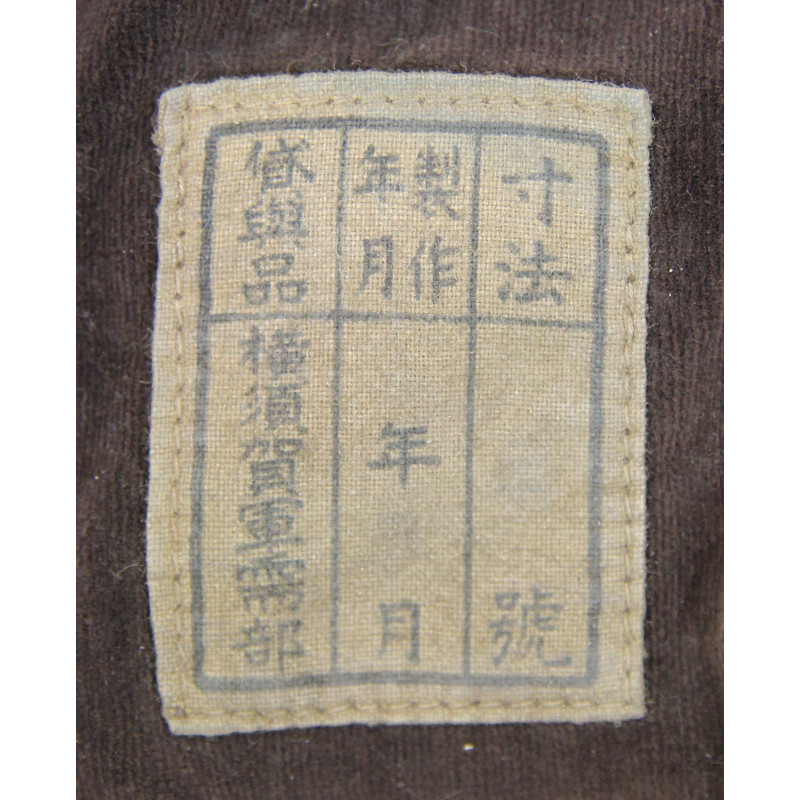 寸法
號
製作
年月
年
月
貸與品
橫須賀軍需部